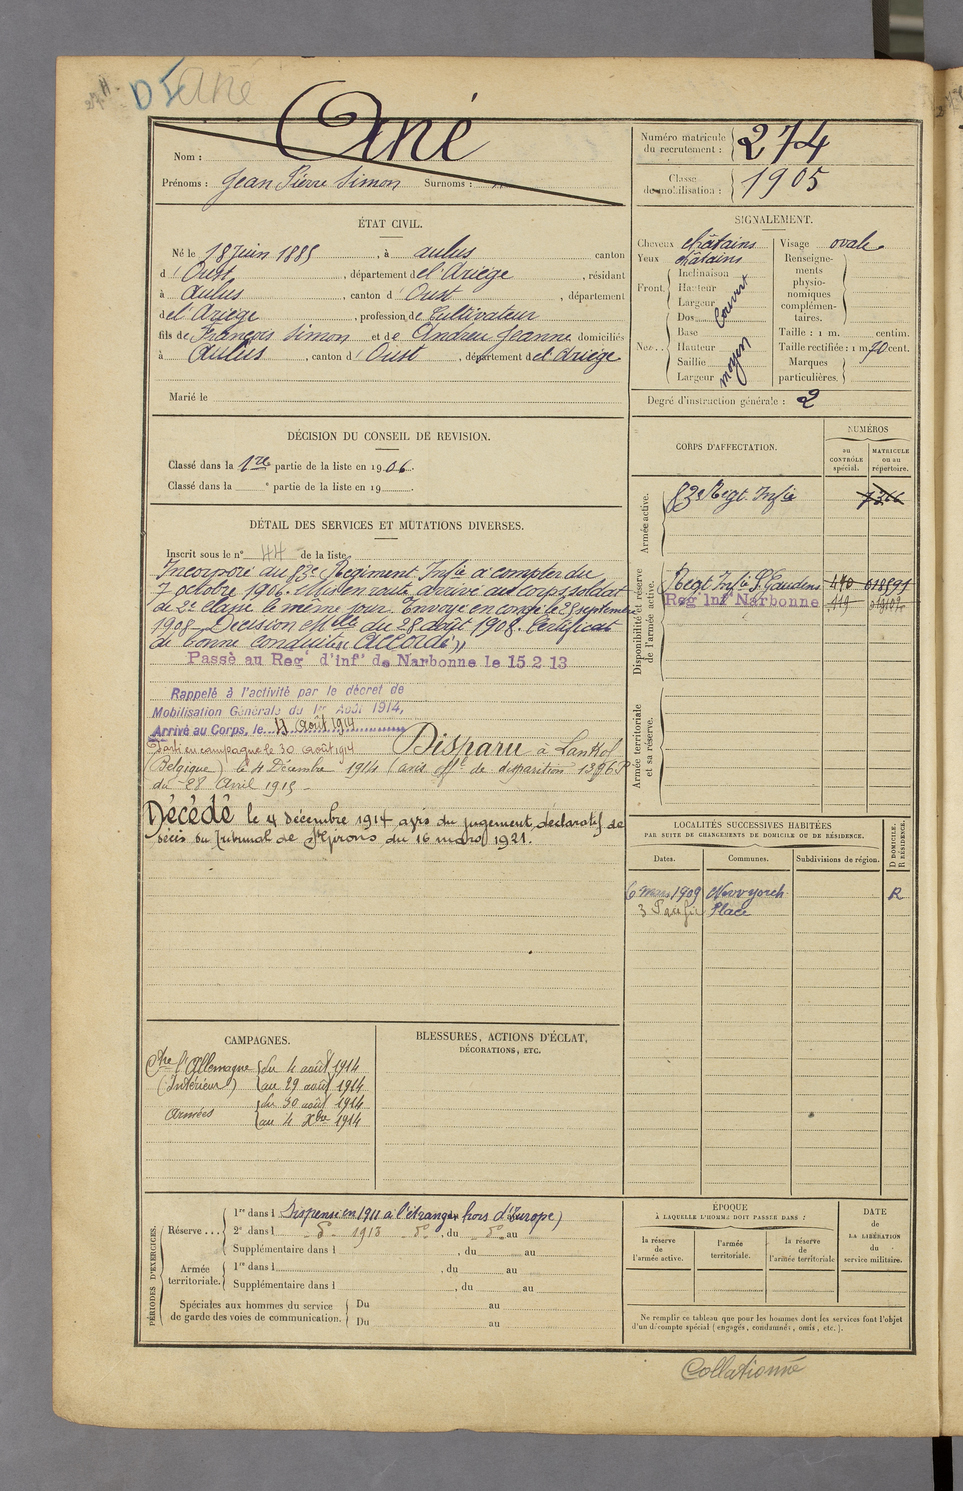 DI Ané
Nom : Ané
Prénoms : Jean Pierre Simon Surnoms :
Numéro matricule du recrutement : 274
Classe de mobilisation : 1905
ÉTAT CIVIL.
Né le 18 Juin 1885, à Aulus canton
d' Oust, département de l'Ariège, résidant
à Aulus, canton d' Oust, département
de l'Ariège, profession de Cultivateur
fils de François Simon et de Andreu Jeanne domiciliés
à Aulus, canton d' Oust, département de l'Ariège
Marié le
SIGNALEMENT.
Cheveux châtains
Yeux châtains
Front. Inclinaison
Hauteur
Largeur
couvert
Nez. . Dos
Base
Hauteur
Saillie
Largeur
moyen
Visage ovale
Renseigne-
ments
physio-
nomiques
complémen-
taires.
Taille : 1 m. centim.
Taille rectifiée : 1 m 70 cent.
Marques
particulières.
Degré d'instruction générale : 2
DÉCISION DU CONSEIL DE REVISION.
Classé dans la 1re partie de la liste en 1906.
Classé dans la e partie de la liste en 19
DÉTAIL DES SERVICES ET MUTATIONS DIVERSES.
Inscrit sous le n° 44 de la liste
Incorporé au 83e Régiment Infie à compter du
7 octobre 1906. Mis en route, arrivé au corps, soldat
de 2e classe le même jour. Envoyé en congé le 28 septembre
1908 Décision Mlle du 28 août 1908. Certificat
de bonne conduite "Accordé"
Passé au Reg' d'inf' de Narbonne le 15.2.13
Rappelé à l'activité par le décret de
Mobilisation Générale du 1er Août 1914,
Arrivé au Corps, le 4 Août 1914
Parti en campagne le 30 août 1914 Disparu à Lankof
(Belgique) le 4 Décembre 1914 (avis offel de disparition
du 28 Avril 1915
Décédé le 4 décembre 1914 avis du jugement déclaratif de
décès du Tribunal de St Girons du 16 mars 1921.
CORPS D'AFFECTATION.
NUMÉROS
au CONTRÔLE spécial.
MATRICULE ou au répertoire.
Armée active.
83e Régt Infie
Disponibilité et réserve de l'armée active.
Régt Infie St Gaudens 440 018595
Reg' Inf' Narbonne 449
Armée territoriale et sa réserve.
LOCALITÉS SUCCESSIVES HABITÉES
PAR SUITE DE CHANGEMENTS DE DOMICILE OU DE RÉSIDENCE.
Dates. Communes. Subdivisions de région.
D DOMICILE. R RÉSIDENCE.
6 mars 1909 New yorck R
3 Place
CAMPAGNES.
Ctre l'Allemagne du 4 août 1914
(Intérieur) au 29 août 1914
Armées du 30 août 1914
au 4 Xbre 1914
BLESSURES, ACTIONS D'ÉCLAT,
DÉCORATIONS, ETC.
PÉRIODES D'EXERCICES.
Réserve . . .
1re dans l Dispensé en 1911 à l'étranger (hors d'Europe)
2e dans l do 1913 do, du do au
Supplémentaire dans l , du au
Armée territoriale.
1re dans l , du au
Supplémentaire dans l , du au
Spéciales aux hommes du service
de garde des voies de communication.
Du au
Du au
ÉPOQUE
À LAQUELLE L'HOMME DOIT PASSER DANS :
la réserve de l'armée active.
l'armée territoriale.
la réserve de l'armée territoriale
DATE
de
LA LIBÉRATION
du
service militaire.
Ne remplir ce tableau que pour les hommes dont les services font l'objet
d'un décompte spécial (engagés, condamnés, omis, etc.).
Collationné